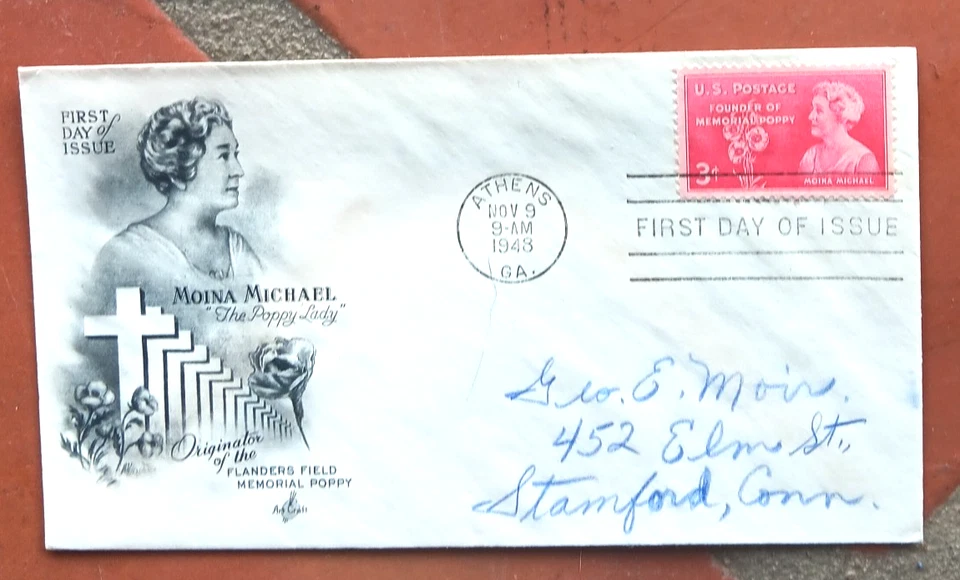 FIRST
DAY of
ISSUE
MOINA MICHAEL
"The Poppy Lady"
Originator
of the
FLANDERS FIELD
MEMORIAL POPPY
Art Craft
ATHENS
NOV 9
9-AM
1948
GA.
U.S. POSTAGE
FOUNDER OF
MEMORIAL POPPY
3¢
MOINA MICHAEL
FIRST DAY OF ISSUE
Geo. E. Moir.
452 Elm St.,
Stamford, Conn.